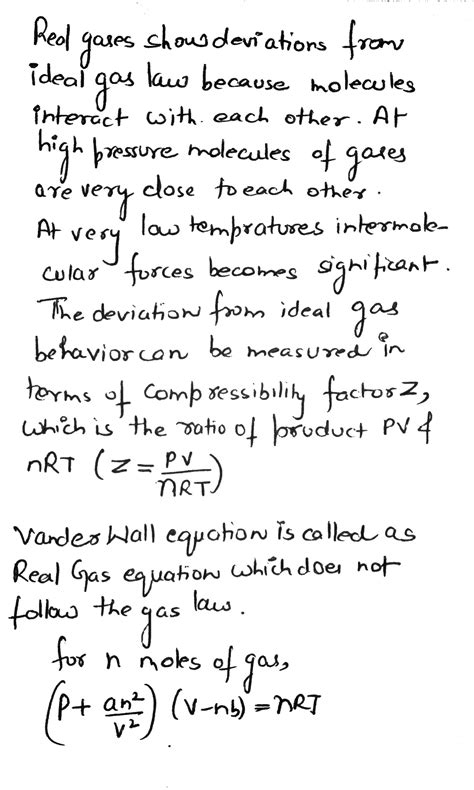 Real gases shows deviations from
ideal gas law because molecules
interact with each other. At
high pressure molecules of gases
are very close to each other.
At very low tempratures intermole-
cular forces becomes significant.
The deviation from ideal gas
behavior can be measured in
terms of compressibility factor Z,
which is the ratio of product PV &
nRT (Z = PV/nRT)
Vander Wall equation is called as
Real Gas equation which does not
follow the gas law.
for n moles of gas,
(P + an²/V²) (V-nb) = nRT